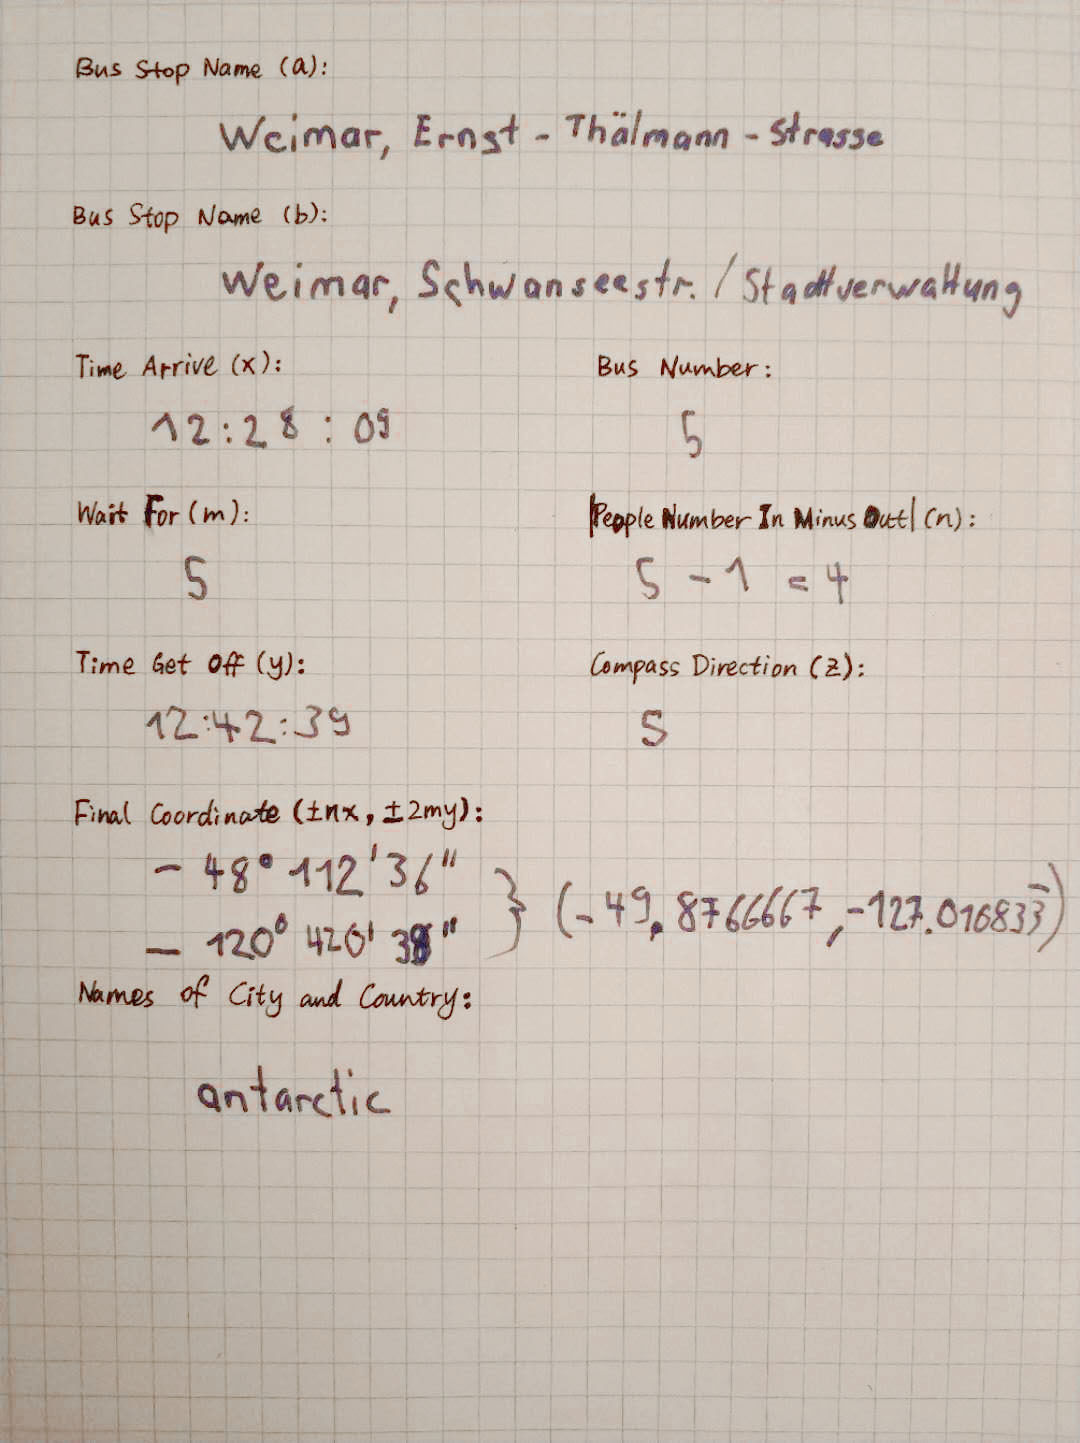 Bus Stop Name (a):
Weimar, Ernst - Thälmann - Strasse
Bus Stop Name (b):
Weimar, Schwanseestr. / Stadtverwaltung
Time Arrive (x): Bus Number:
12:28:09 5
Wait For (m): |People Number In Minus Out| (n):
5 5 - 1 = 4
Time Get Off (y): Compass Direction (z):
12:42:39 S
Final Coordinate (±nx, ±2my):
- 48° 112' 36"
(-49.8766667, -127.016833)
- 120° 420' "
Names of City and Country:
antarctic